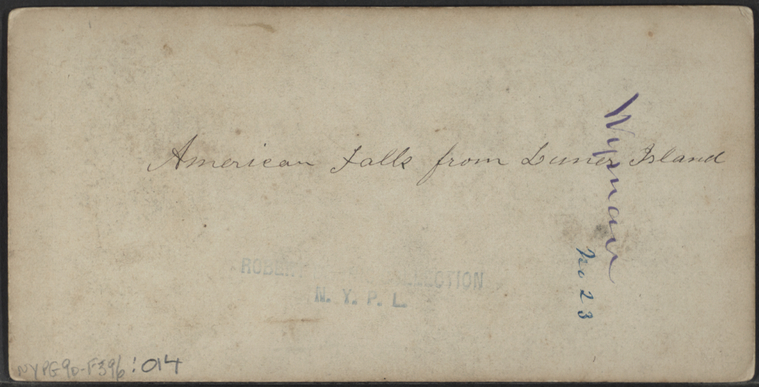 American Falls from Luner Island
Wyman
No 23
ROBER ECTION
N. Y. P. L.
NYPG90-F396:014